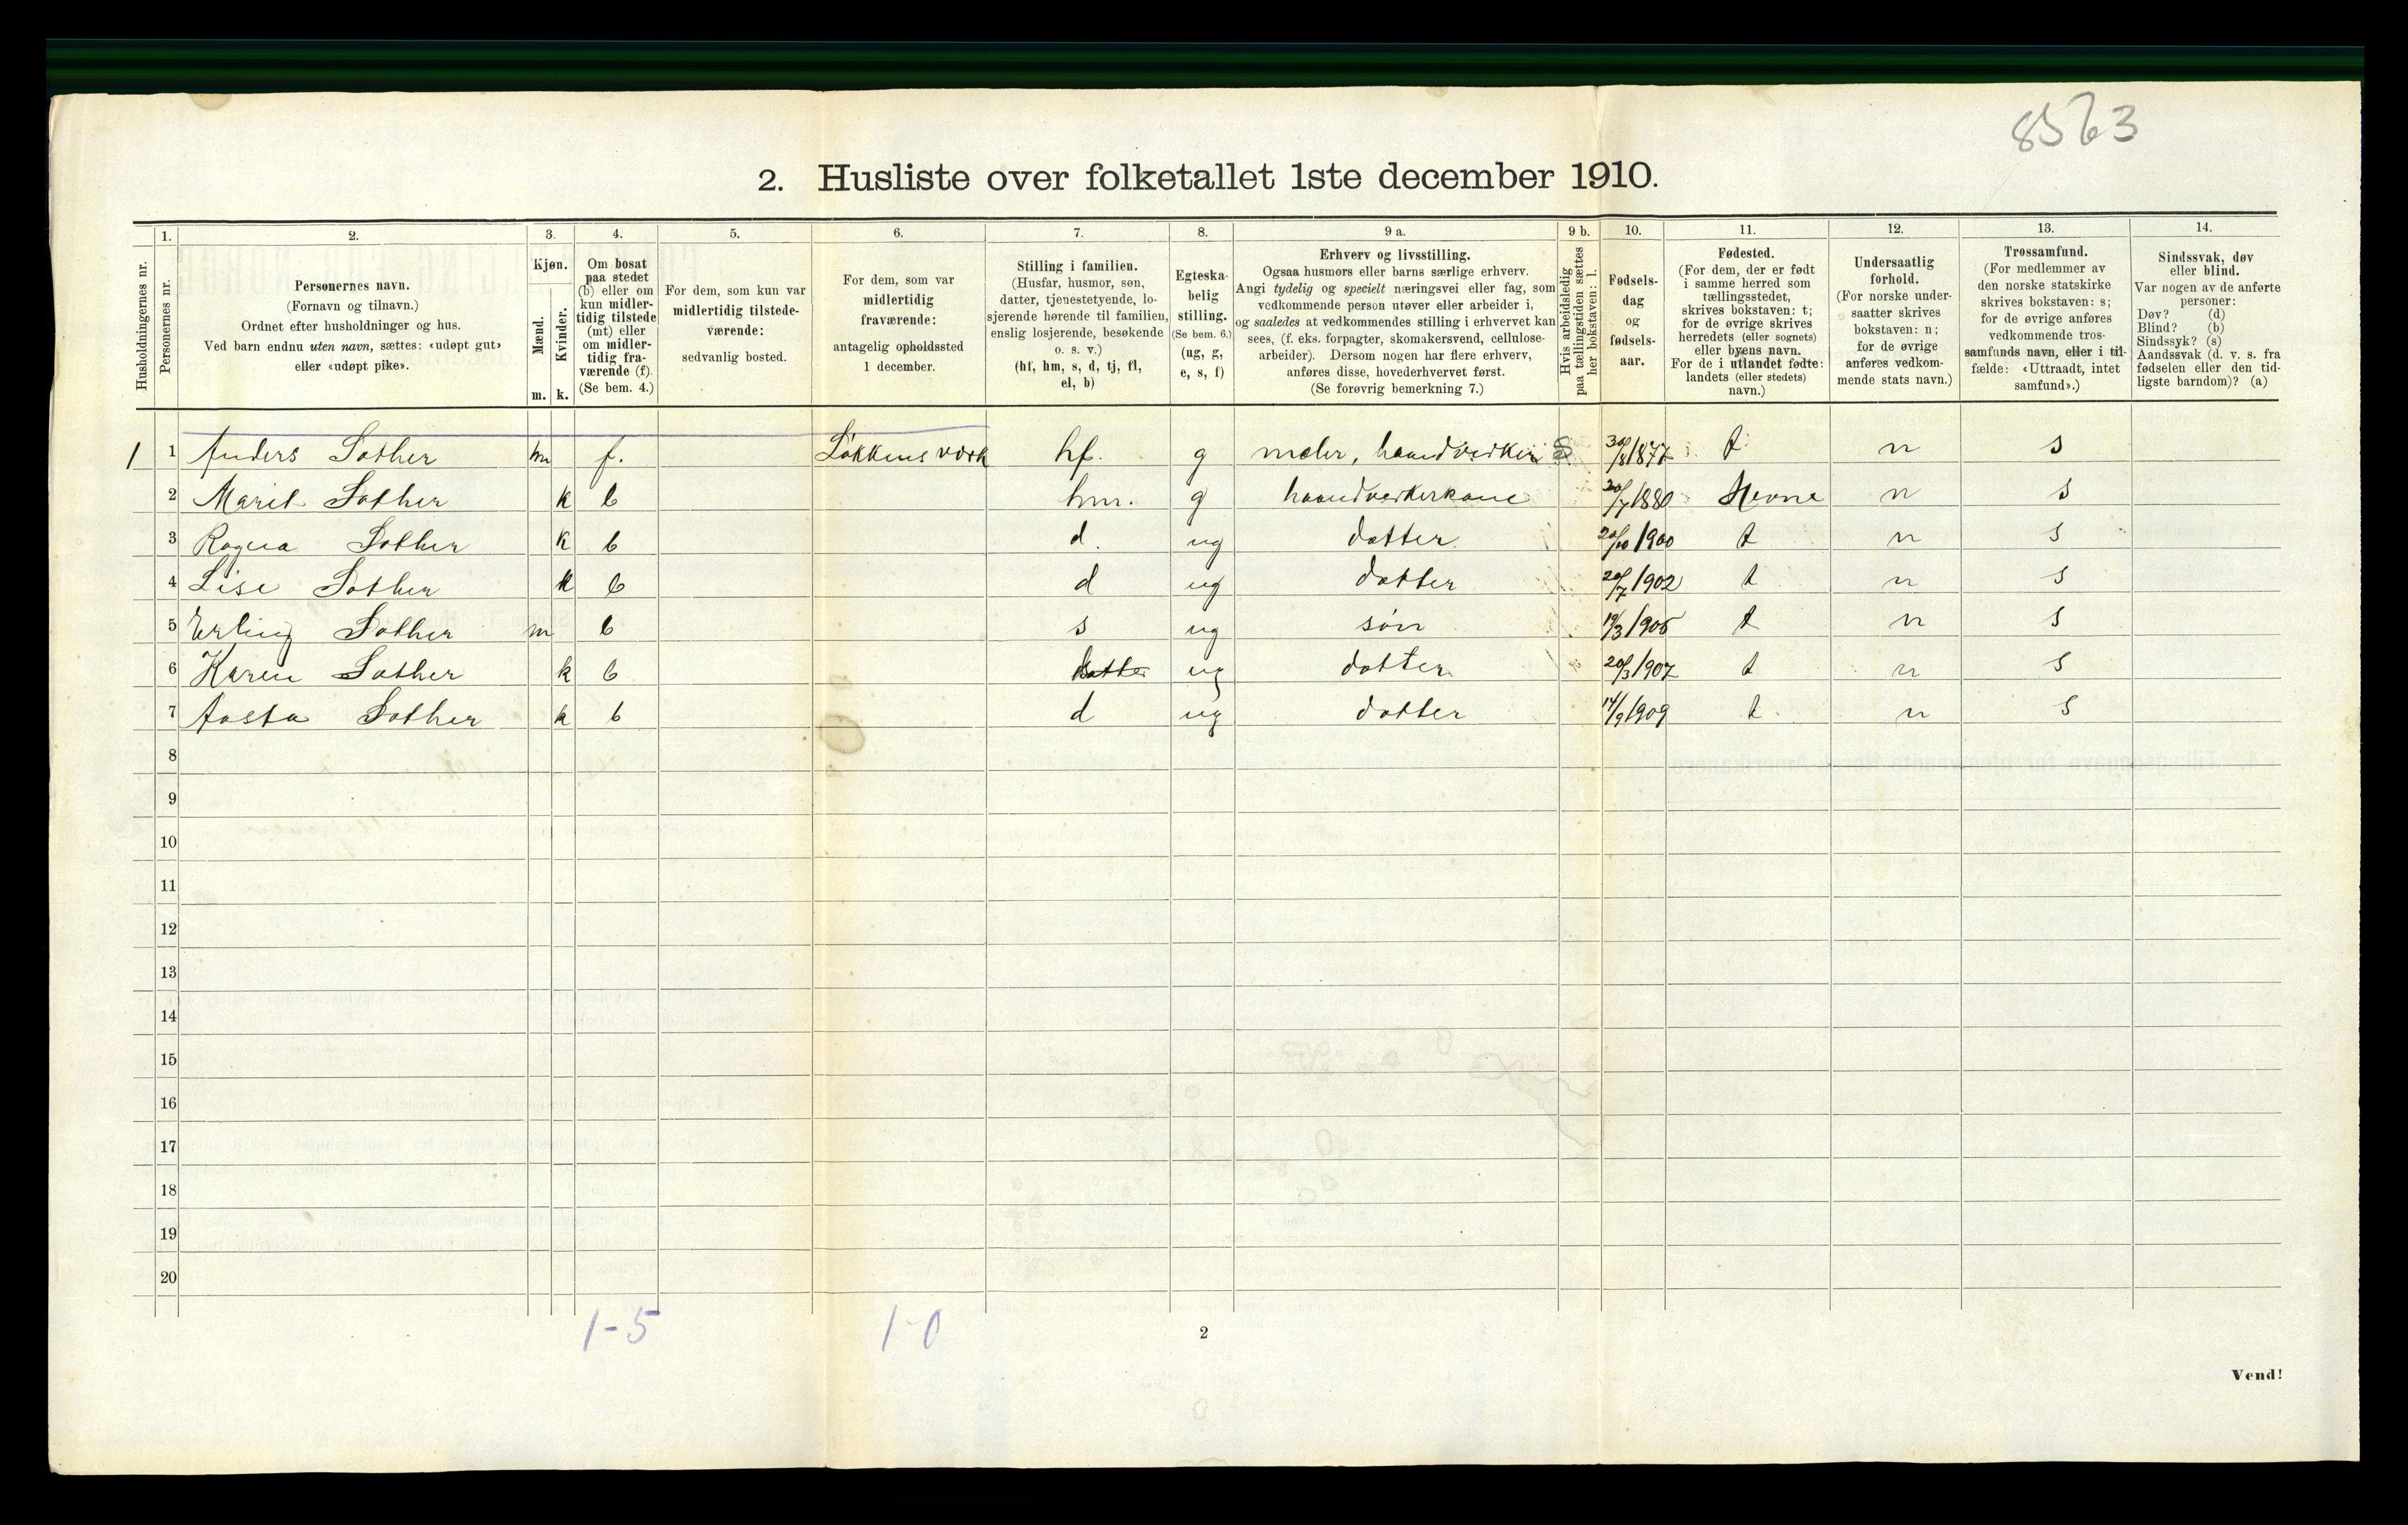 8563
2. Husliste over folketallet 1ste december 1910.
Husholdningernes nr.
1.
Personernes nr.
2.
Personernes navn.
(Fornavn og tilnavn.)
Ordnet efter husholdninger og hus.
Ved barn endnu uten navn, sættes: «udøpt gut»
eller «udøpt pike».
3.
Kjøn.
Mænd.
Kvinder.
m. k.
4.
Om bosat
paa stedet
(b) eller om
kun midler-
tidig tilstede
(mt) eller
om midler-
tidig fra-
værende (f).
(Se bem. 4.)
5.
For dem, som kun var
midlertidig tilstede-
værende:
sedvanlig bosted.
6.
For dem, som var
midlertidig
fraværende:
antagelig opholdssted
1 december.
7.
Stilling i familien.
(Husfar, husmor, søn,
datter, tjenestetyende, lo-
sjerende hørende til familien,
enslig losjerende, besøkende
o. s. v.)
(hf, hm, s, d, tj, fl,
el, b)
8.
Egteska-
belig
stilling.
(Se bem. 6.)
(ug, g,
e, s, f)
9 a.
Erhverv og livsstilling.
Ogsaa husmors eller barns særlige erhverv.
Angi tydelig og specielt næringsvei eller fag, som
vedkommende person utøver eller arbeider i,
og saaledes at vedkommendes stilling i erhvervet kan
sees, (f. eks. forpagter, skomakersvend, cellulose-
arbeider). Dersom nogen har flere erhverv,
anføres disse, hovederhvervet først.
(Se forøvrig bemerkning 7.)
9 b.
Hvis arbeidsledig
paa tællingstiden sættes
her bokstaven: l.
10.
Fødsels-
dag
og
fødsels-
aar.
11.
Fødested.
(For dem, der er født
i samme herred som
tællingsstedet,
skrives bokstaven: t;
for de øvrige skrives
herredets (eller sognets)
eller byens navn.
For de i utlandet fødte:
landets (eller stedets)
navn.)
12.
Undersaatlig
forhold.
(For norske under-
saatter skrives
bokstaven: n;
for de øvrige
anføres vedkom-
mende stats navn.)
13.
Trossamfund.
(For medlemmer av
den norske statskirke
skrives bokstaven: s;
for de øvrige anføres
vedkommende tros-
samfunds navn, eller i til-
fælde: «Uttraadt, intet
samfund».)
14.
Sindssvak, døv
eller blind.
Var nogen av de anførte
personer:
Døv? (d)
Blind? (b)
Sindssyk? (s)
Aandssvak (d. v. s. fra
fødselen eller den tid-
ligste barndom)? (a)
1 1 Anders Sother m f. Løkkens værk hf. g maler, haandverker 30/8 1877 t n s
2 Marit Sother k b hm. g haandverkerkone 20/7 1880 Hevne n s
3 Ragna Sother k b d. ug datter 20/10 1900 t n s
4 Lise Sother k b d ug datter 20/7 1902 t n s
5 Erling Sother m b s ug søn 19/3 1905 t n s
6 Karen Sother k b datter ug datter 20/3 1907 t n s
7 Aasta Sother k b d ug datter 14/9 1909 t n s
8
9
10
11
12
13
14
15
16
17
18
19
20
1-5 1-0
2
Vend!